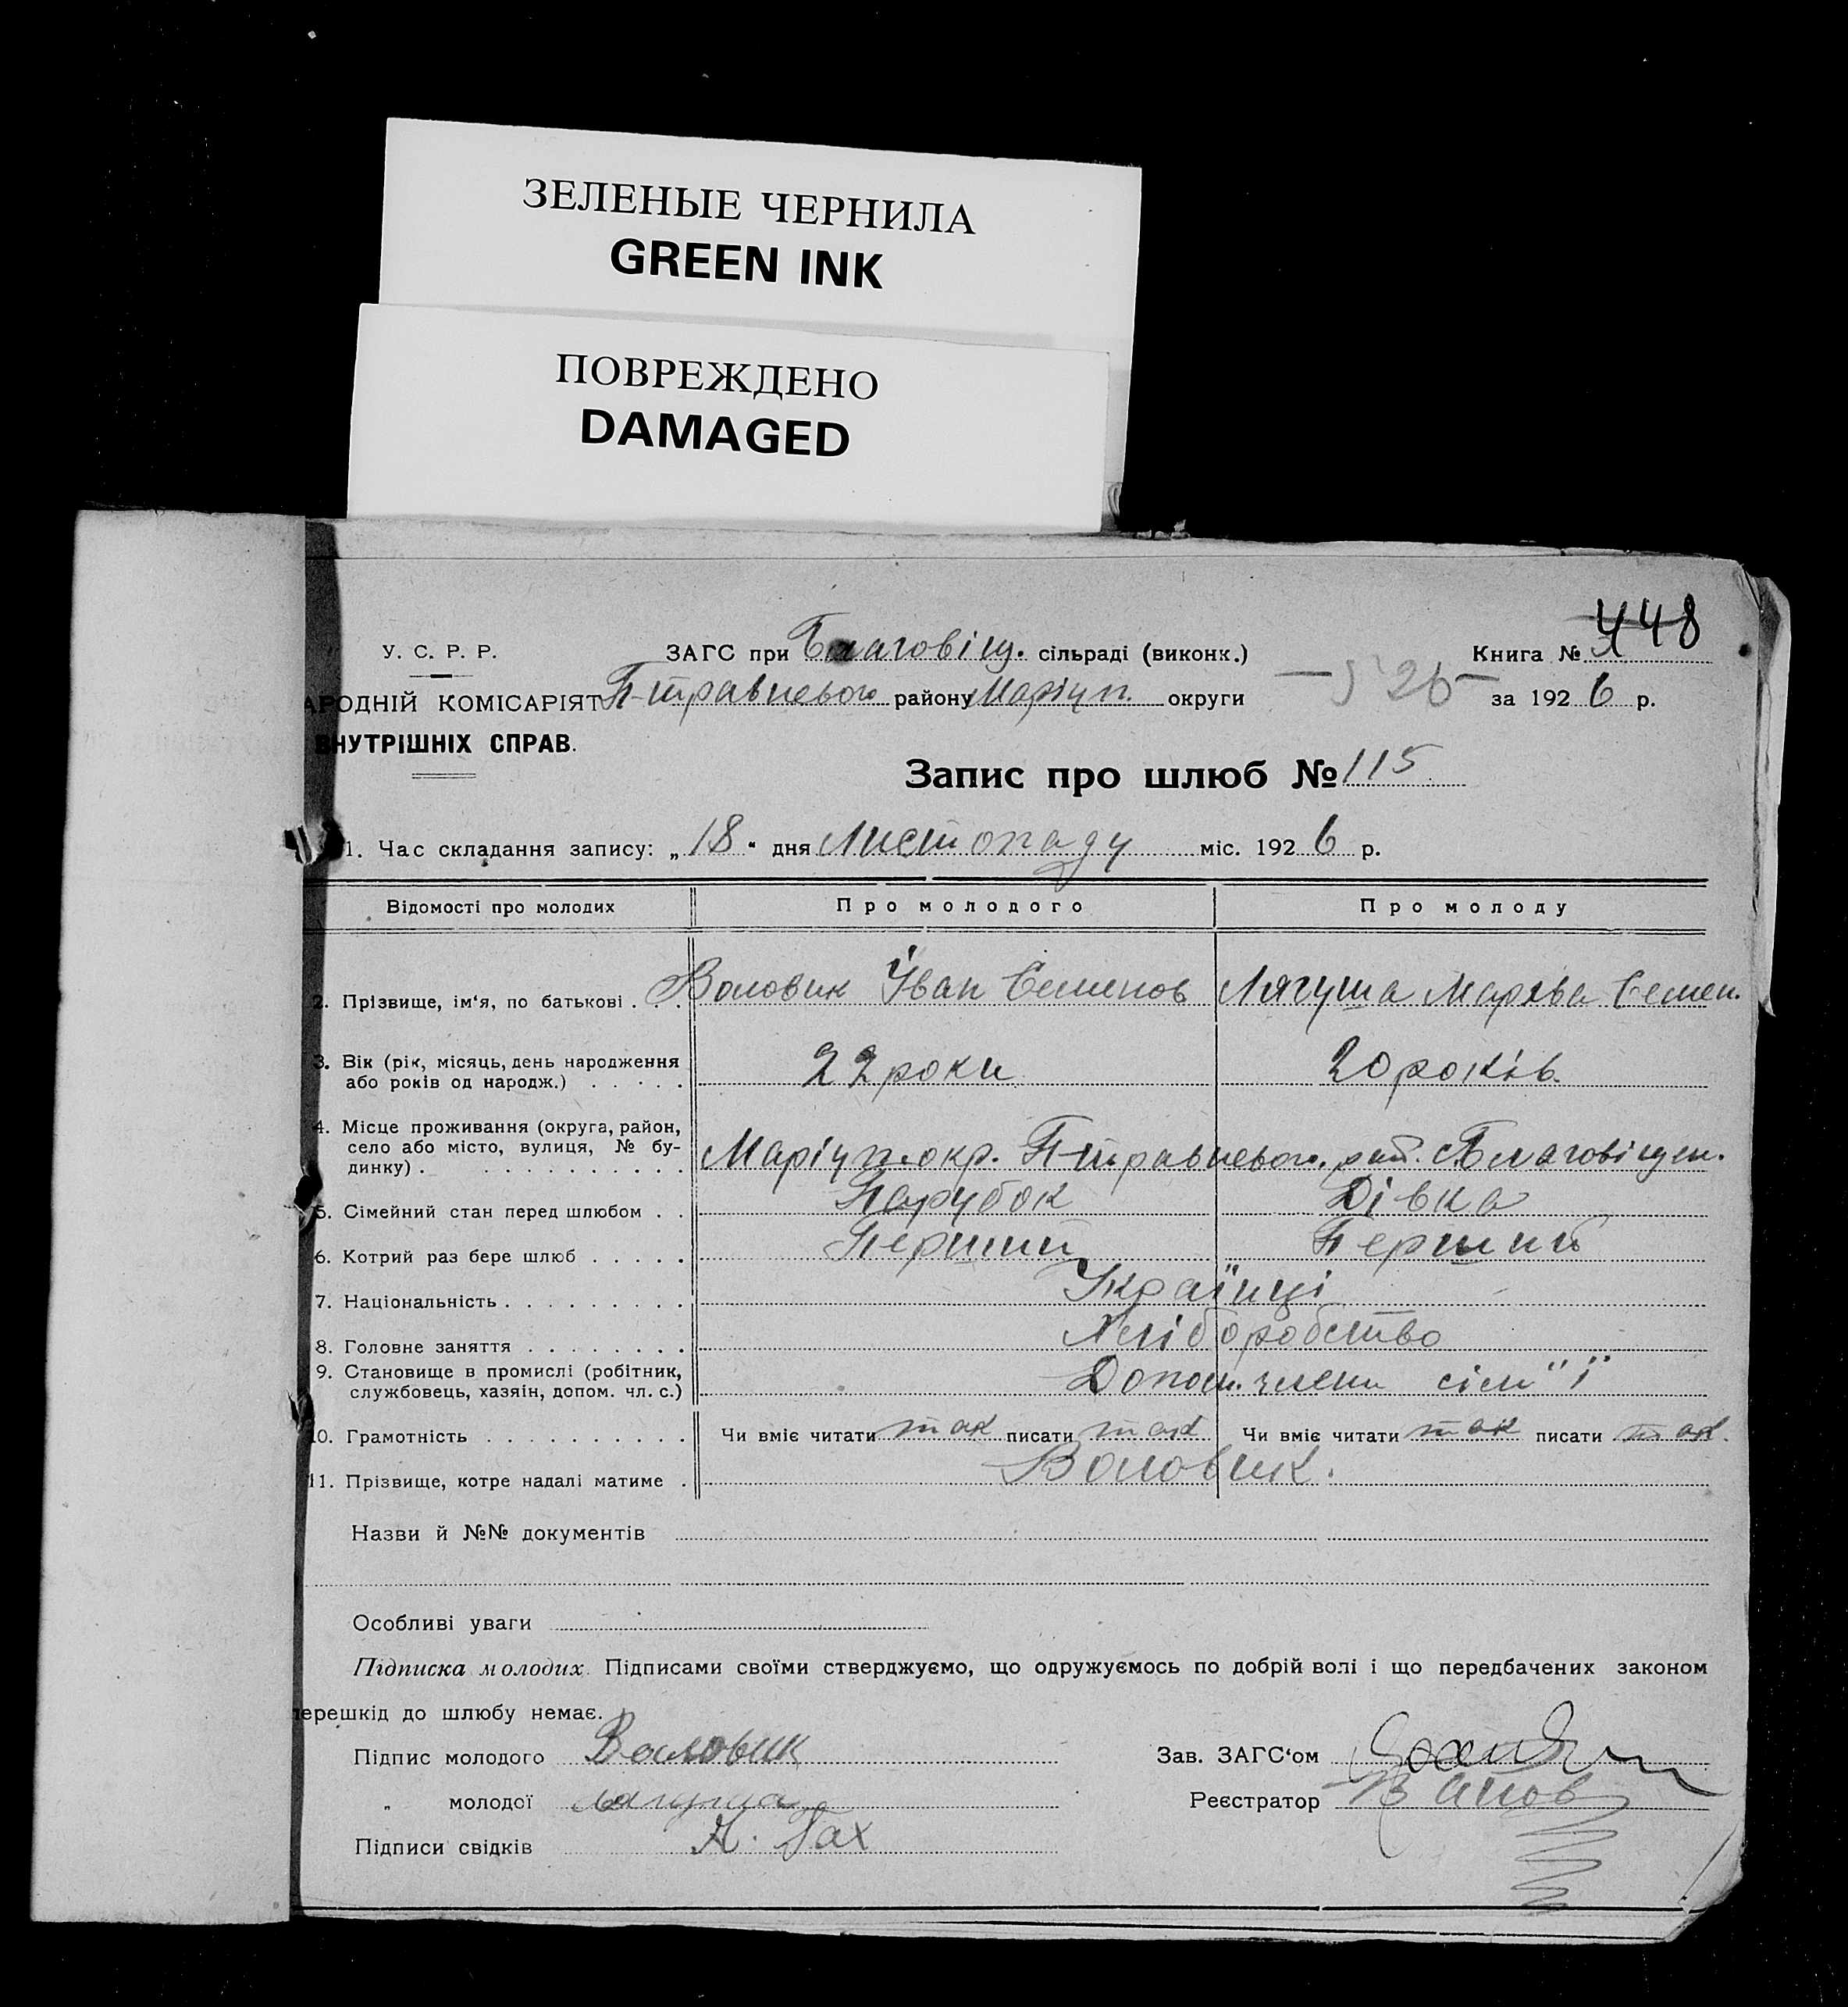 ЗЕЛЕНЫЕ ЧЕРНИЛА
GREEN INK
ПОВРЕЖДЕНО
DAMAGED
448
У. С. Р. Р. ЗАГС при Благовіщ. сільраді (виконк.) Книга №
АРОДНІЙ КОМІСАРІЯТ П-травневого району Маріуп. округи за 1926 р.
ВНУТРІШНІХ СПРАВ.
Запис про шлюб № 115
1. Час складання запису: „18“ дня Листопаду міс. 1926 р.
Відомості про молодих Про молодого Про молоду
2. Прізвище, ім‘я, по батькові . . Воловик Іван Семенов Лягуша Мархва Семен.
3. Вік (рік, місяць, день народження
або років од народж.) . . . . . 22 роки 20 років.
4. Місце проживання (округа, район,
село або місто, вулиця, № бу-
динку) . . . . . . . . . . . Маріуп. окр. П-травневого. рай. с Благовіщен.
5. Сімейний стан перед шлюбом . . Парубок Дівка
6. Котрий раз бере шлюб . . . . . Перший Перший
7. Національність . . . . . . . . . Українці
8. Головне заняття . . . . . . . . Хліборобство
9. Становище в промислі (робітник,
службовець, хазяін, допом. чл. с.) Допом. члени сім"ї
10. Грамотність . . . . . . . . . . Чи вміє читати так писати так Чи вміє читати так писати так.
11. Прізвище, котре надалі матиме . Воловик.
Назви й №№ документів
Особливі уваги
Підписка молодих. Підписами своїми стверджуємо, що одружуємось по добрій волі і що передбачених законом
перешкід до шлюбу немає.
Підпис молодого Воловик Зав. ЗАГС‘ом
„ молодої Лягуша Реєстратор
Підписи свідків